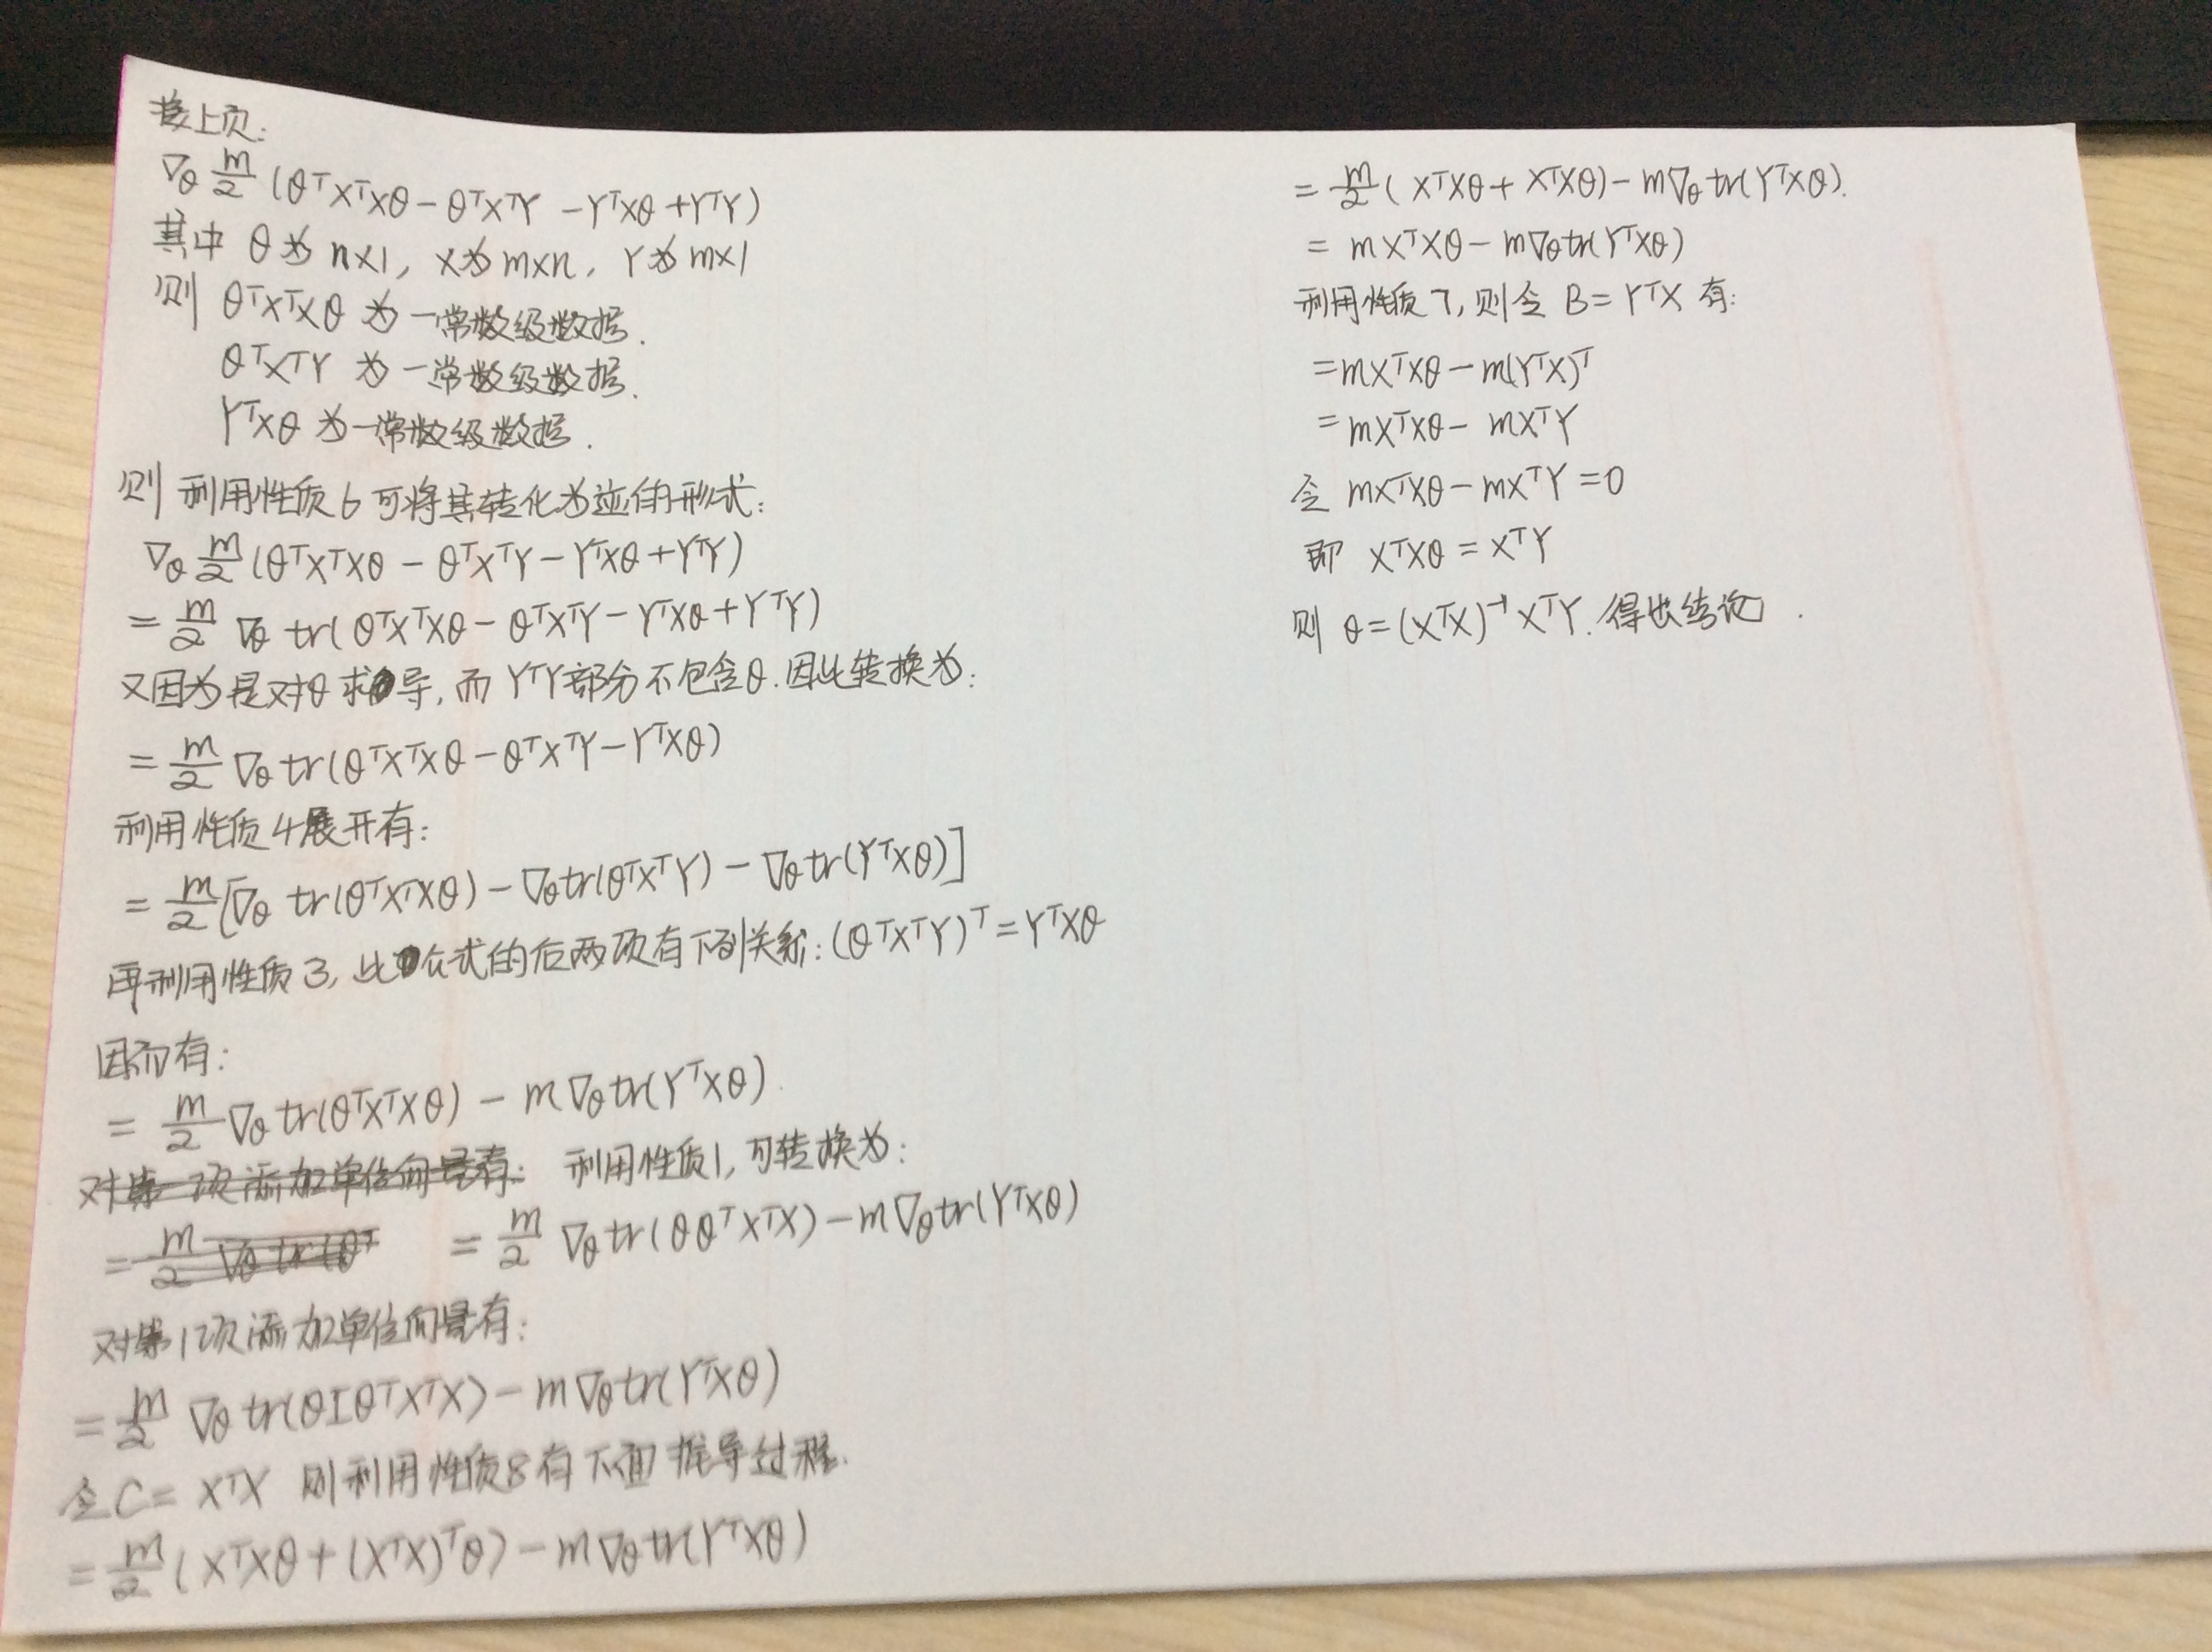 接上页:
∇θ m/2 (θᵀXᵀXθ - θᵀXᵀY - YᵀXθ + YᵀY)
其中 θ为 n×1, X为 m×n, Y为 m×1
则 θᵀXᵀXθ 为一常数级数据.
θᵀXᵀY 为一常数级数据.
YᵀXθ 为一常数级数据.
则 利用性质6可将其转化为迹的形式:
∇θ m/2 (θᵀXᵀXθ - θᵀXᵀY - YᵀXθ + YᵀY)
= m/2 ∇θ tr(θᵀXᵀXθ - θᵀXᵀY - YᵀXθ + YᵀY)
又因为是对θ求导, 而 YᵀY部分不包含θ. 因此转换为:
= m/2 ∇θ tr(θᵀXᵀXθ - θᵀXᵀY - YᵀXθ)
利用性质4展开有:
= m/2 [∇θ tr(θᵀXᵀXθ) - ∇θ tr(θᵀXᵀY) - ∇θ tr(YᵀXθ)]
再利用性质3, 此公式的后两项有下列关系: (θᵀXᵀY)ᵀ = YᵀXθ
因而有:
= m/2 ∇θ tr(θᵀXᵀXθ) - m∇θ tr(YᵀXθ).
对第一项添加单位向量有: 利用性质1, 可转换为:
= m/2 ∇θ tr(θᵀ = m/2 ∇θ tr(θθᵀXᵀX) - m∇θ tr(YᵀXθ)
对第1项添加单位向量有:
= m/2 ∇θ tr(θIθᵀXᵀX) - m∇θ tr(YᵀXθ)
令C = XᵀX 则利用性质8有下面推导过程.
= m/2 (XᵀXθ + (XᵀX)ᵀθ) - m∇θ tr(YᵀXθ)
= m/2 (XᵀXθ + XᵀXθ) - m∇θ tr(YᵀXθ).
= mXᵀXθ - m∇θ tr(YᵀXθ)
利用性质7, 则令 B = YᵀX 有:
= mXᵀXθ - m(YᵀX)ᵀ
= mXᵀXθ - mXᵀY
令 mXᵀXθ - mXᵀY = 0
即 XᵀXθ = XᵀY
则 θ = (XᵀX)⁻¹XᵀY. 得出结论.